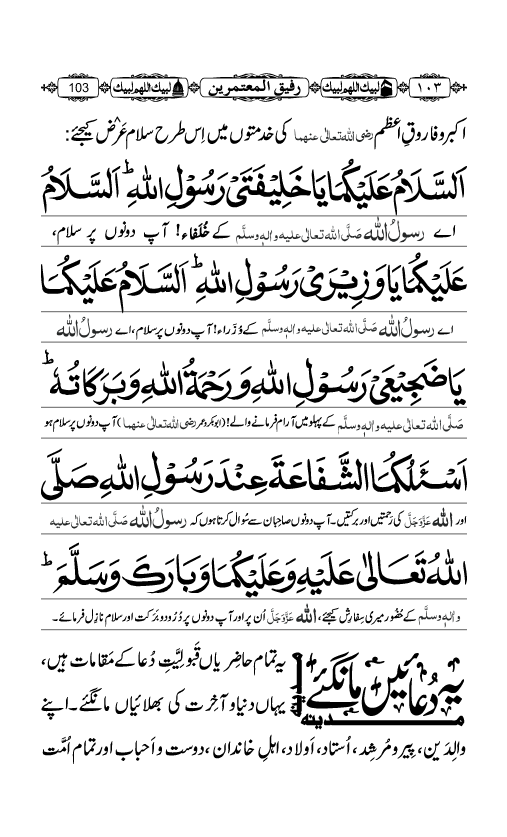 ۱۰۳ لبیك اللهم لبیك رفیق المعتمرین لبیك اللهم لبیك 103
اکبر و فاروقِ اعظم رضی اللہ تعالٰی عنھما کی خدمتوں میں اِس طرح سلام عَرْض کیجئے:
اَلسَّلَامُ عَلَیْکُمَا یَا خَلِیْفَتَیْ رَسُوْلِ اللهِ ؕ اَلسَّلَامُ
اے رسولُ اللہ صَلَّی اللہ تعالٰی علیہ والہٖ وسلَّم کے خُلَفاء! آپ دونوں پر سلام،
عَلَیْکُمَا یَا وَزِیْرَیْ رَسُوْلِ اللهِ ؕ اَلسَّلَامُ عَلَیْکُمَا
اے رسولُ اللہ صَلَّی اللہ تعالٰی علیہ والہٖ وسلَّم کے وُزَراء! آپ دونوں پر سلام، اے رسولُ اللہ
یَا ضَجِیْعَیْ رَسُوْلِ اللهِ وَرَحْمَةُ اللهِ وَبَرَکَاتُهٗ ؕ
صَلَّی اللہ تعالٰی علیہ والہٖ وسلَّم کے پہلو میں آرام فرمانے والے! (ابوبکر وعمر رضی اللہ تعالٰی عنھما) آپ دونوں پر سلام ہو
اَسْئَلُکُمَا الشَّفَاعَةَ عِنْدَ رَسُوْلِ اللهِ صَلَّی
اور اللہ عَزَّوَجَلَّ کی رَحْمتیں اور برکتیں۔ آپ دونوں صاحبان سے سُوال کرتا ہوں کہ رسولُ اللہ صَلَّی اللہ تعالٰی علیہ
اللهُ تَعَالٰی عَلَیْهِ وَعَلَیْکُمَا وَبَارَكَ وَسَلَّمَ ؕ
والہٖ وسلَّم کے حُضُور میری سِفارِش کیجئے، اللہ عَزَّوَجَلَّ اُن پر اور آپ دونوں پر دُرُود و بَرَکت اور سلام نازِل فرمائے۔
یہ دُعائیں مانگئے
مدینہ
یہ تمام حاضِریاں قَبولیّتِ دُعا کے مَقامات ہیں،
یہاں دنیا و آخِرت کی بھلائیاں مانگئے۔ اپنے
والِدَین، پیر و مُرشِد، اُستاد، اَولاد، اہلِ خاندان، دوست و اَحباب اور تمام اُمَّت